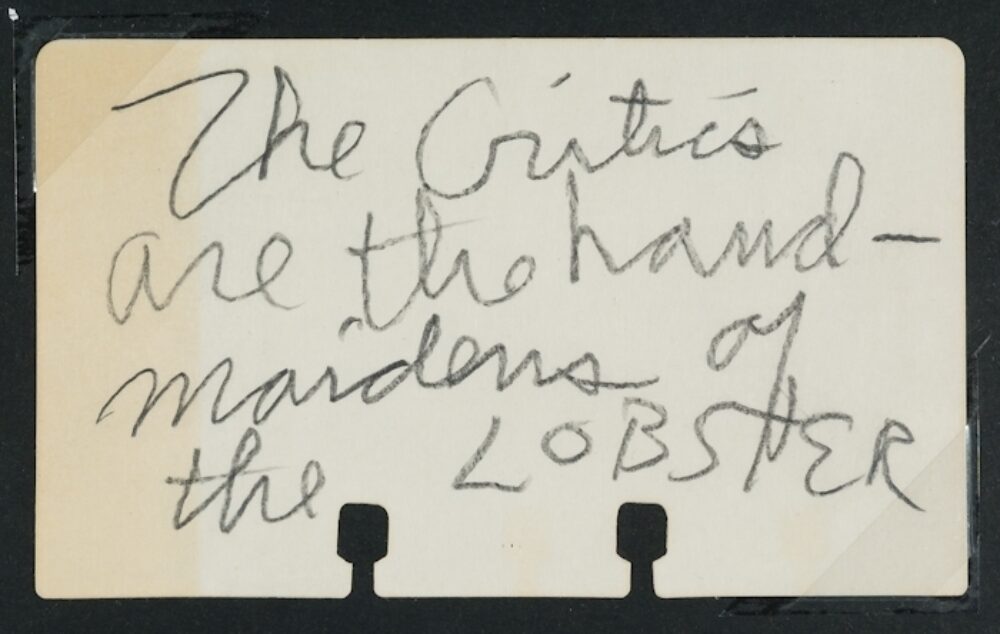 The Critics
are the hand-
maidens of
the LOBSTER